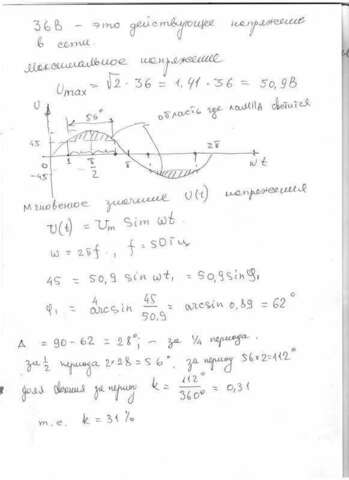 36В – это действующее напряжение
в сети.
Максимальное напряжение
Umax = √2 · 36 = 1,41 · 36 = 50,9В
U
56°
область где лампа светится
45
0
-45
1
π/2
π
2π
wt
Мгновенное значение U(t) напряжения
U(t) = Um Sin wt.
w = 2πf , f = 50 Гц
45 = 50,9 sin wt₁ = 50,9 sin φ₁
φ₁ = arcsin 45/50,9 = arcsin 0,89 = 62°
Δ = 90 - 62 = 28°, – за 1/4 периода.
за 1/2 периода 2×28 = 56°. за период 56×2=112°
доля свечения за период k = 112°/360° = 0,31
т.е. k = 31%